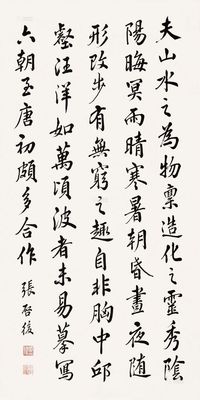 夫山水之為物稟造化之靈秀陰
陽晦冥雨晴寒暑朝昏晝夜隨
形改步有無窮之趣自非胸中邱
壑汪洋如萬頃波者未易摹寫
六朝至唐初頗多合作
張啓後